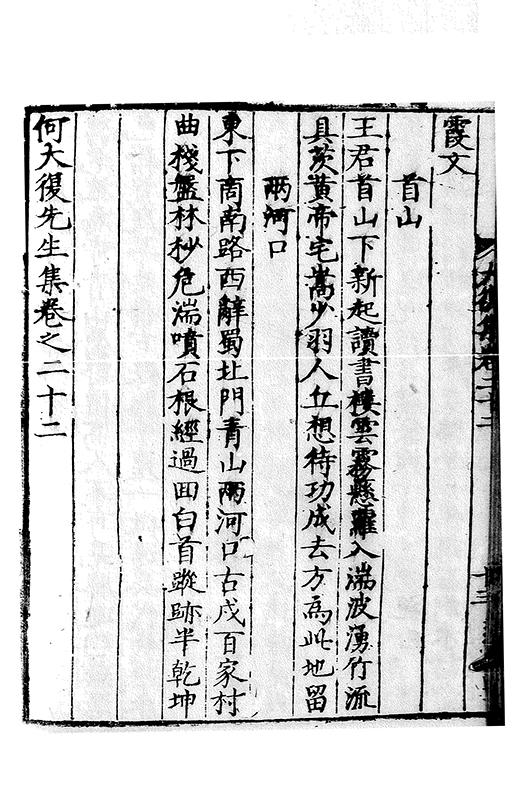 霞文
首山
王君首山下新起讀書樓雲霧懸蘿入湍波湧竹流
具茨黃帝宅嵩少羽人丘想待功成去方爲此地留
兩河口
東下商南路西辭蜀北門青山兩河口古戍百家村
曲棧盤林杪危湍噴石根經過回白首蹤跡半乾坤
何大復先生集卷之二十二